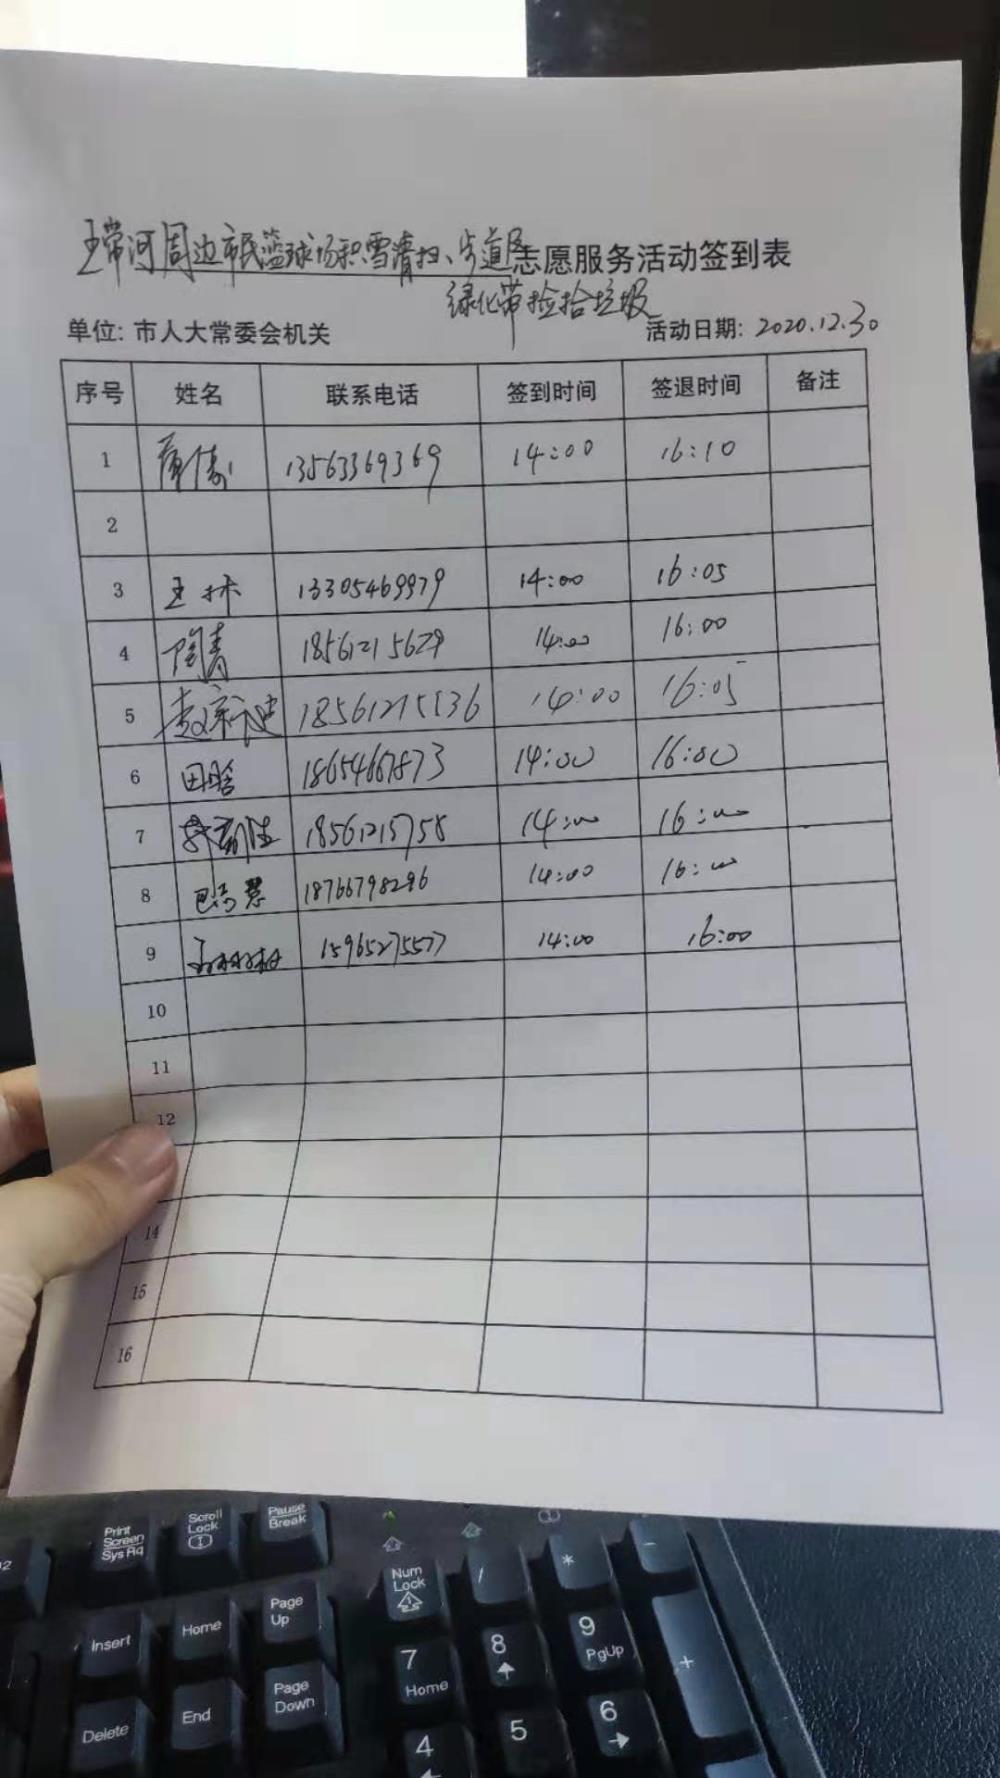 玉带河周边市民篮球场积雪清扫、步道及志愿服务活动签到表
绿化带捡拾垃圾
单位: 市人大常委会机关 活动日期: 2020.12.30
序号 姓名 联系电话 签到时间 签退时间 备注
1 13563369369 14:00 16:10
2
3 王林 13305469979 14:00 16:05
4 陶青 18561215629 14:00 16:00
5 18561215136 14:00 16:05
6 田晗 18654667873 14:00 16:00
7 18561215758 14:00 16:00
8 18766798296 14:00 16:00
9 15965275577 14:00 16:00
10
11
12
14
15
16
Print Screen SysRq
Scroll Lock
Pause Break
Insert
Home
Page Up
Num Lock
/
*
-
7 Home
8
9 PgUp
+
Delete
End
Page Down
4
5
6